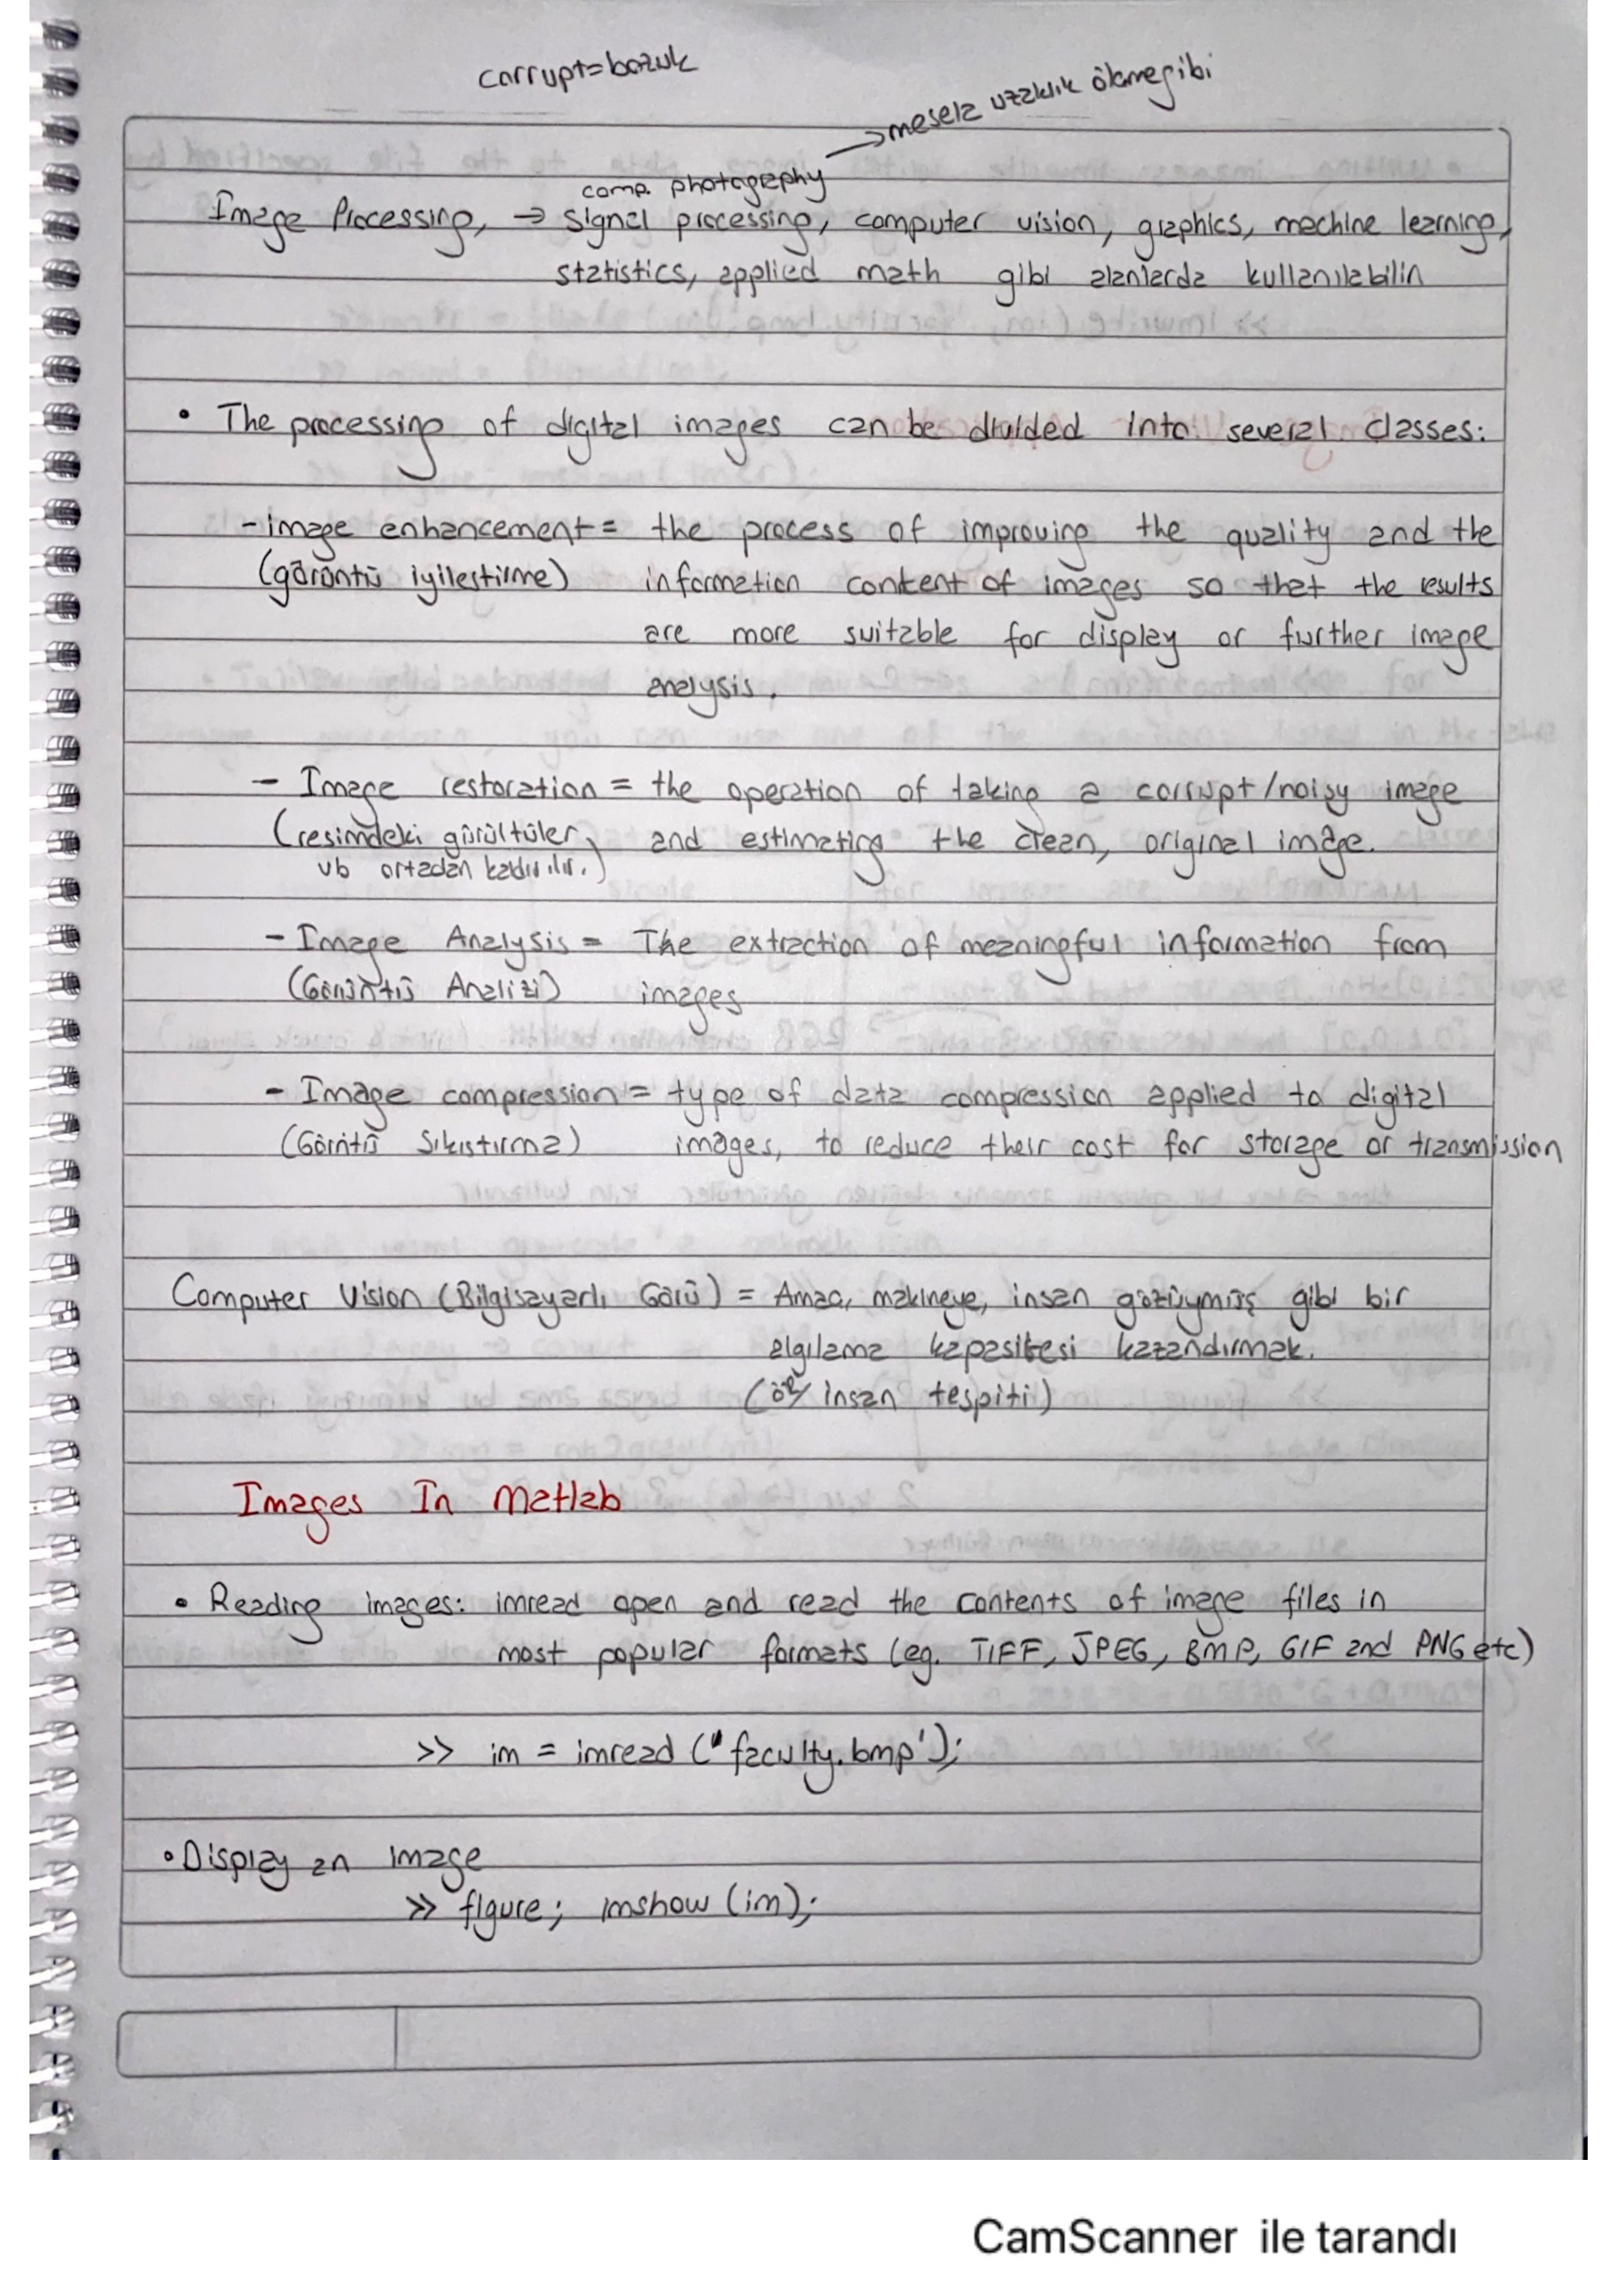 corrupt=bozuk
→mesela uzaklık ölçme gibi
comp. photography
Image Processing, → signal processing, computer vision, graphics, machine learning,
statistics, applied math gibi alanlarda kullanılabilir
• The processing of digital images can be divided into several classes:
- image enhancement = the process of improving the quality and the
(görüntü iyileştirme) information content of images so that the results
are more suitable for display or further image
analysis.
- Image restoration = the operation of taking a corrupt/noisy image
(resimdeki gürültüler and estimating the clean, original image.
vb ortadan kaldırılır.)
- Image Analysis = The extraction of meaningful information from
(Görüntü Analizi) images
- Image compression = type of data compression applied to digital
(Görüntü Sıkıştırma) images, to reduce their cost for storage or transmission
Computer Vision (Bilgisayarlı Görü) = Amaç, makineye, insan gözüymüş gibi bir
algılama kapasitesi kazandırmak.
(ör/ insan tespiti)
Images In Matlab
• Reading images: imread open and read the contents of image files in
most popular formats (eg. TIFF, JPEG, BMP, GIF and PNG etc)
>> im = imread ('faculty.bmp');
• Display an image
>> figure; imshow (im);
CamScanner ile tarandı